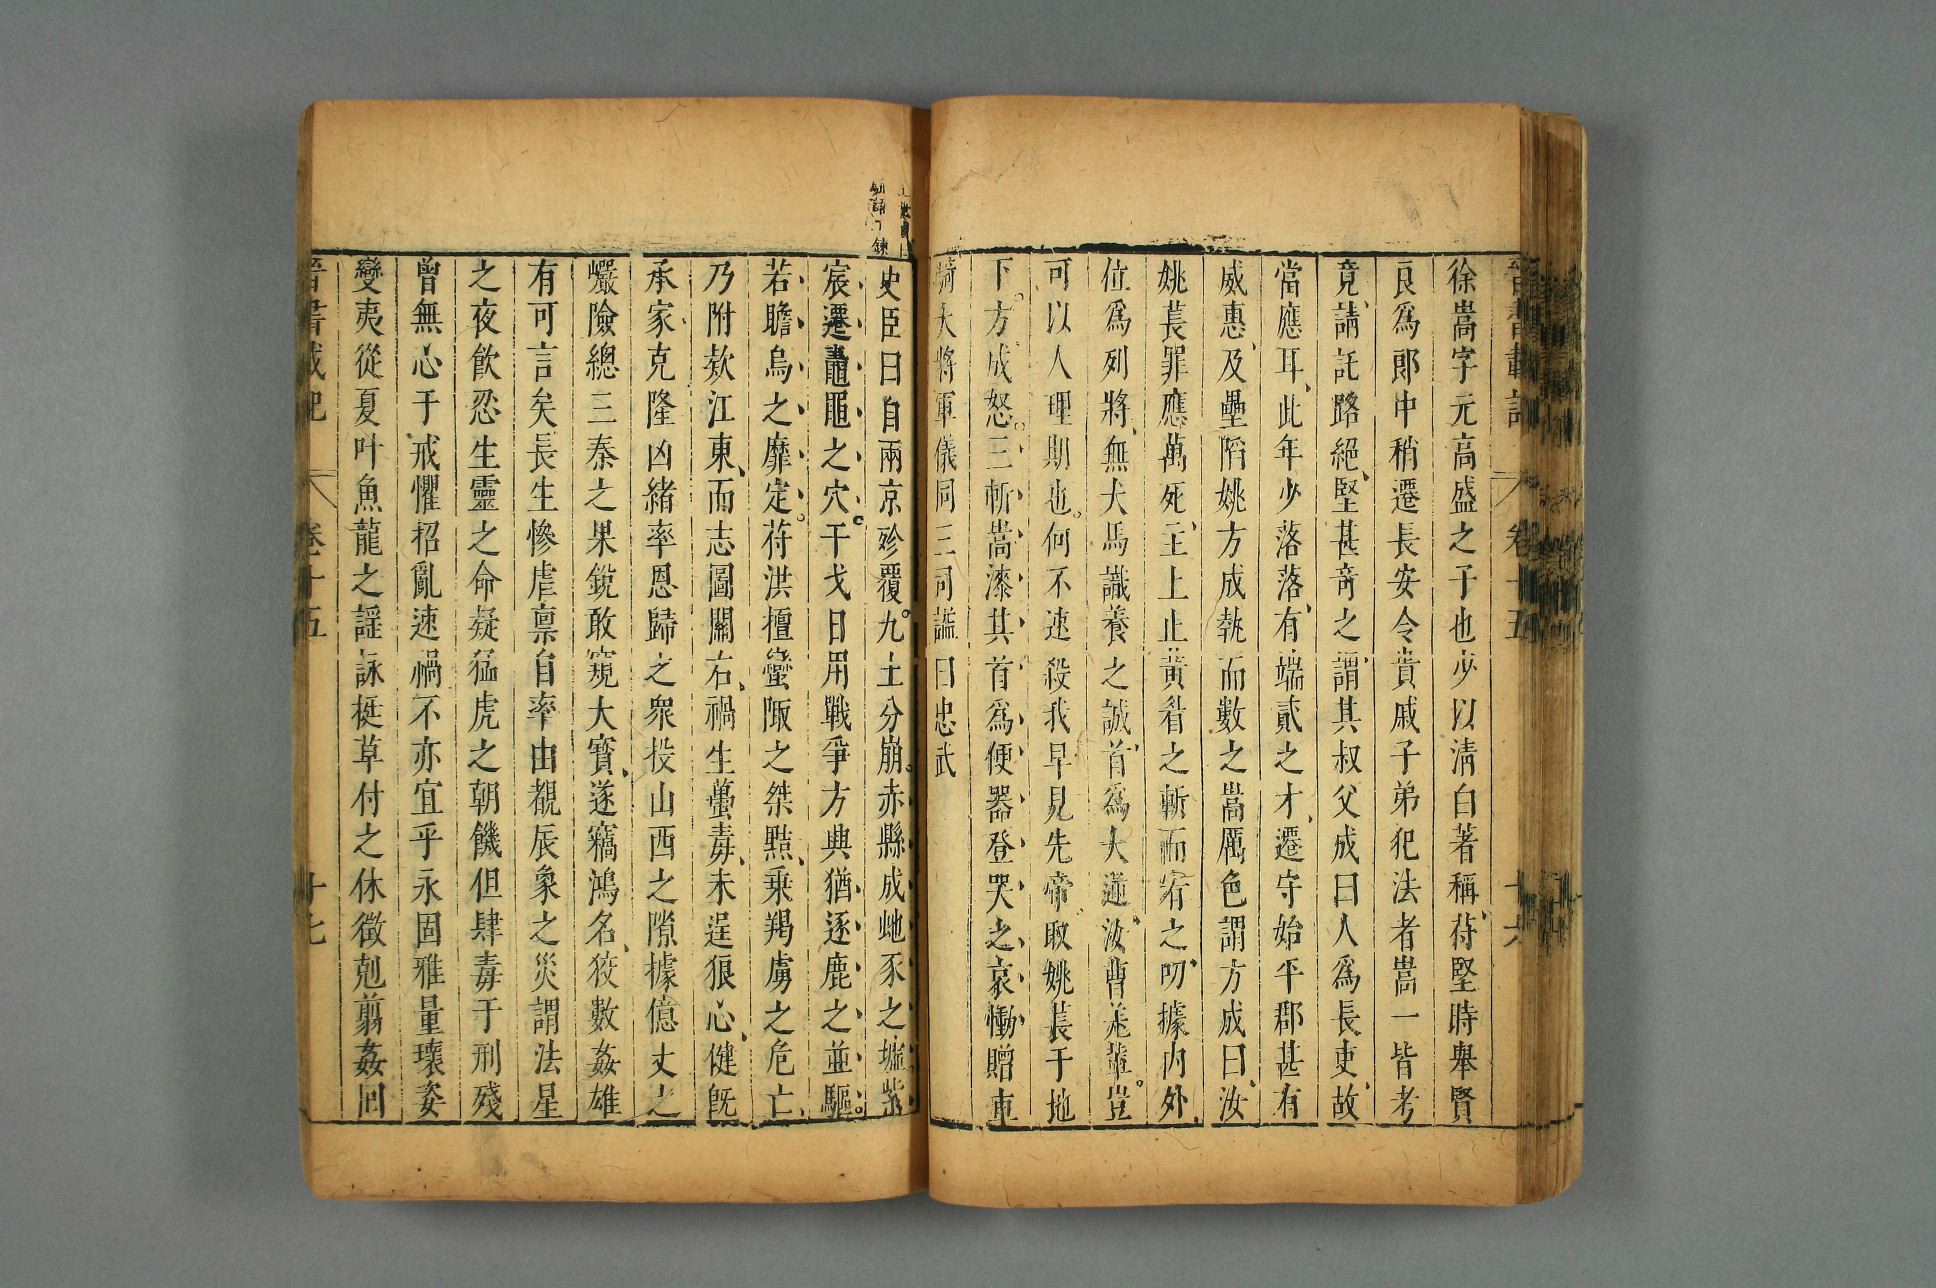 晉書載記 卷十五 十六
徐嵩字元高盛之子也少以清白著稱苻堅時舉賢
良爲郎中稍遷長安令貴戚子弟犯法者嵩一皆考
竟請託路絕堅甚奇之謂其叔父成曰人爲長吏故
當應耳此年少落落有端貳之才遷守始平郡甚有
威惠及壘陷姚方成執而數之嵩厲色謂方成曰汝
姚萇罪應萬死主上止黃眉之斬而宥之叨據內外
位爲列將無犬馬識養之誠首爲大逆汝曹羌輩豈
可以人理期也何不速殺我早見先帝取姚萇于地
下方成怒三斬嵩漆其首爲便器登哭之哀慟贈車
騎大將軍儀同三司謚曰忠武
史臣曰自兩京殄覆九土分崩赤縣成虵豕之墟紫
宸遷鼃黽之穴干戈日用戰爭方興猶逐鹿之並驅
若瞻烏之靡定苻洪擅蠻陬之桀黠乗羯虜之危亡
乃附欵江東而志圖關右禍生蠆毒未逞狼心健旣
承家克隆凶緒率思歸之衆投山西之隙據億丈之
巖險總三秦之果銳敢窺大寶遂竊鴻名狡數姦雄
有可言矣長生慘虐稟自率由覩辰象之災謂法星
之夜飲忍生靈之命疑猛虎之朝饑但肆毒于刑殘
曾無心于戒懼招亂速禍不亦宜乎永固雅量瓌姿
變夷從夏叶魚龍之謡詠挺草付之休徵剋翦姦回
晉書載記 卷十五 十七